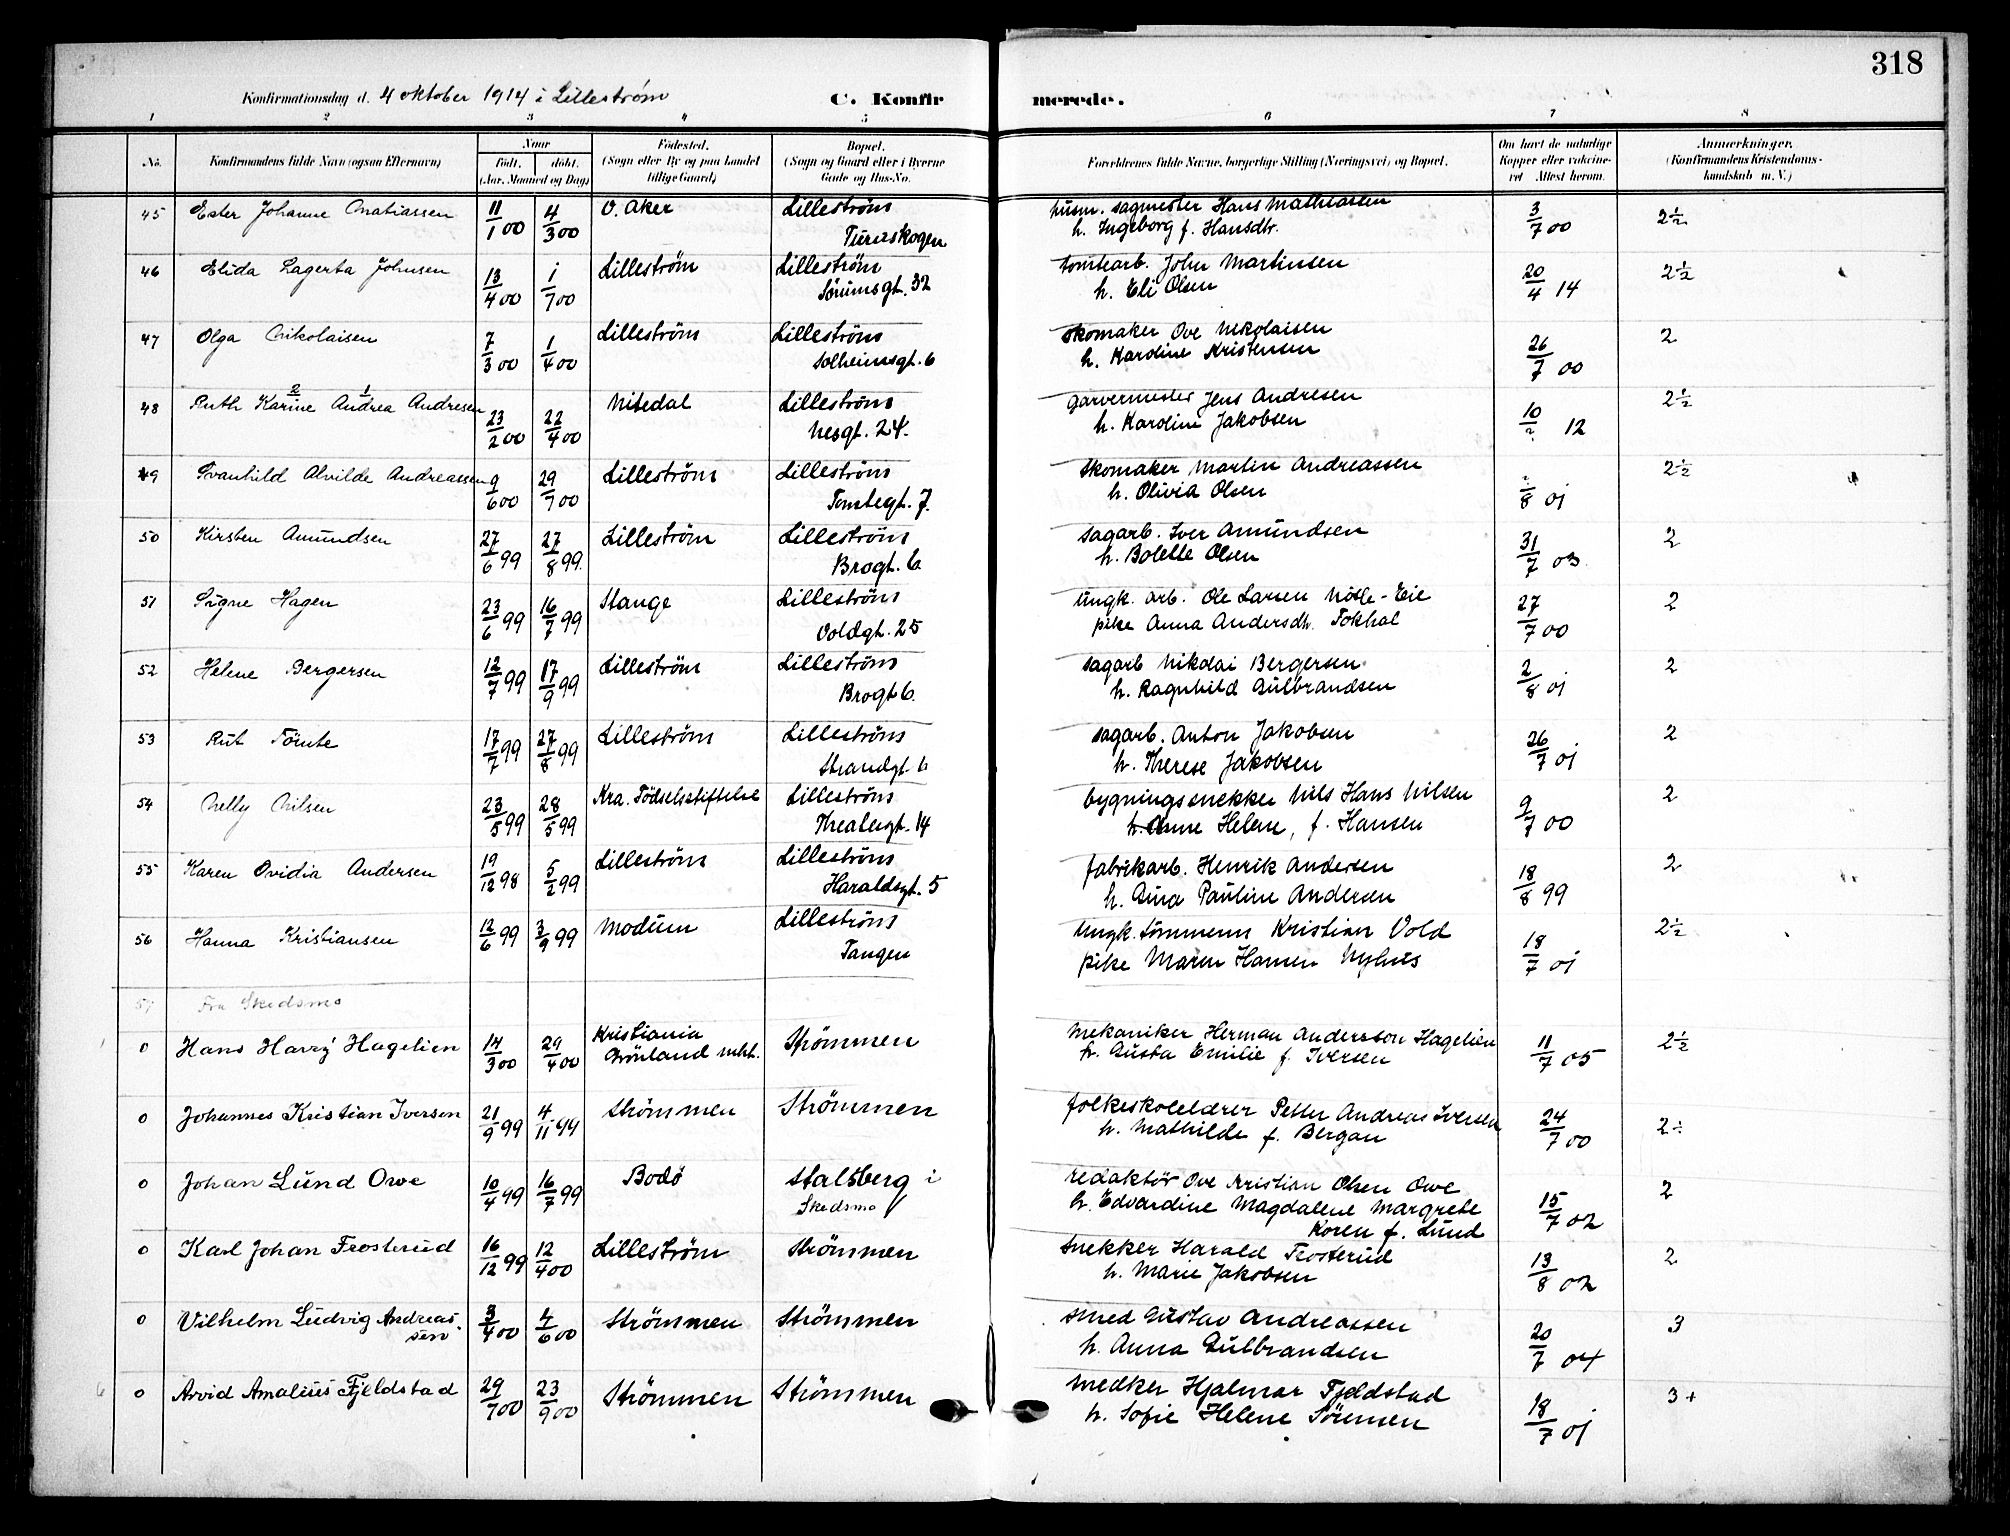 318
Konfirmationsdag d. 4 oktober 1914 i Lilleström
C. Konfirmerede.
1 2 3 4 5 6 7 8
No.
Konfirmandens fulde Navn (ogsaa Efternavn)
Naar
født. døbt.
(Aar, Maaned og Dag)
Fødested.
(Sogn eller By og paa Landet
tillige Gaard)
Bopæl.
(Sogn og Gaard eller i Byerne
Gade og Hus-No.
Forældrenes fulde Navne, borgerlige Stilling (Næringsvei) og Bopæl.
Om havt de naturlige
Kopper eller vaksine-
ret Attest herom.
Anmerkninger.
(Konfirmandens Kristendoms-
kundskab m. V.)
45 Ester Johanne Matiassen 11/1 00 4/3 00 V. Aker Lilleström husm. sagmester Hans Mathiassen 3/7 00 2½
Tuenskogen h. Ingeborg f. Hansdtr.
46 Elida Lagerta Johnsen 13/4 00 1/7 00 Lilleström Lilleström tomtearb. John Martinsen 20/4 14 2½
Sörumsgt. 32 h. Eli Olsen
47 Olga Nikolaisen 7/3 00 1/4 00 Lilleström Lilleström skomaker Ove Nikolaisen 26/7 00 2
Solheimsgt. 6 h. Karoline Kristensen
48 Ruth Karine 2 Andrea 1 Andresen 23/2 00 22/4 00 Nitedal Lilleström garvermester Jens Andresen 10/2 12 2½
Nesgt. 24. h. Karoline Jakobsen
49 Svanhild Alvilde Andreassen 9/6 00 29/7 00 Lilleström Lilleström skomaker Martin Andreassen /8 01 2½
Tomtegt. 7. h. Olivia Olsen
50 Kirsten Amundsen 27/6 99 27/8 99. Lilleström Lilleström sagarb. Iver Amundsen 31/7 03. 2
Brogt. 6 h. Bolette Olsen
51 Signe Hagen 23/6 99 16/7 99 Stange Lilleström ungk. arb. Ole Larsen - Eie 27/7 00 2
Voldgt. 25 pike Anna Andersdtr.
52 Helene Bergersen 12/7 99 17/9 99 Lilleström Lilleström sagarb Nikolai Bergersen 2/8 01 2
Brogt 6. h. Ragnhild Gulbrandsen
53 Rut Tömte 17/7 99 27/8 99 Lilleström Lilleström sagarb. Anton Jakobsen 26/7 01 2
Strandgt. 6 h. Therese Jakobsen
54 Nelly Nilsen 23/5 99 28/5 99 Kra. Födselsstiftelse Lilleström bygningssnekker Nils Hans Nilsen 9/7 00 2
Theatergt. 14 h. Anne Helene, f. Hansen
55 Karen Ovidia Andersen 19/12 98 5/2 99 Lilleström Lilleström fabrikarb. Henrik Andersen 18/8 99 2
Haraldsgt. 5 h. Gina Pauline Andersen
56 Hanna Kristiansen 12/6 99 3/9 99 Modum Lilleström Ungk. tömmerm Kristian Vold 18/7 01 2½
Tangen pike Maren Hansen Nyhus
57 Fra Skedsmo
0 Hans Harry Hagelien 14/3 00 29/4 00 Kristiania Strömmen mekaniker Herman Andersson Hagelien 11/7 05 2½
Grönland h. Gusta Emilie f. Iversen
0 Johannes Kristian Iversen 21/9 99 4/11 99 Strömmen Strömmen folkeskolelærer Petter Andreas Iversen 24/7 00 2÷
h. Mathilde f. Bergan
0 Johan Lund Owe 10/4 99 16/7 99 Bodö Stalsberg i redaktör Ove Kristian Olsen Owe 15/7 02 2
Skedsmo h. Edvardine Magdalene Margrete
Koren f. Lund
0 Karl Johan Frosterud 16/12 99 12/4 00 Lilleström Strömmen Snekker Harald Frosterud 13/8 02 2
h. Marie Jakobsen
0 Vilhelm Ludvig Andreas- 3/4 00 4/6 00 Strömmen Strömmen smed Gustav Andreassen 20/7 04 3
sen h. Anna Gulbrandsen
0 Arvid Amalius Fjeldstad 29/7 00 23/9 00 Strömmen Strömmen Hjalmar Fjeldstad 18/7 01 3+
h. Sofie Helene Sörensen